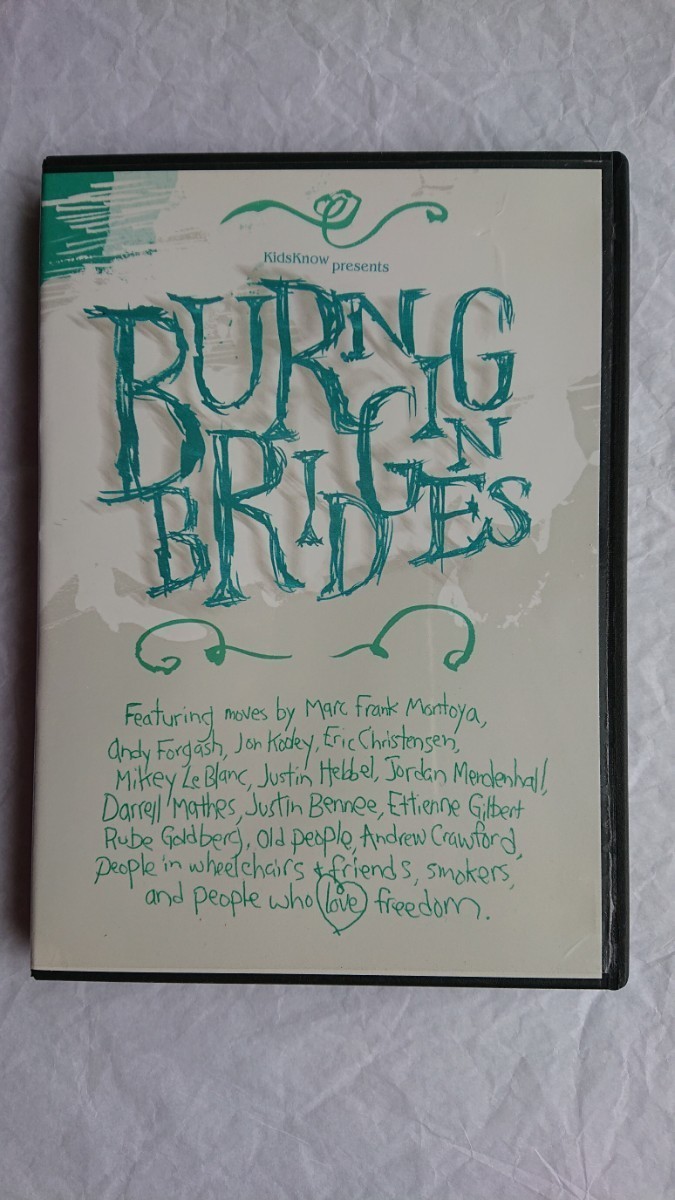 KidsKnow presents
BURNING
IN
BRIDGES
Featuring moves by Marc Frank Montoya,
Andy Forgash, Jon Kooley, Eric Christensen,
Mikey LeBlanc, Justin Hebbel, Jordan Mendenhall,
Darrell Mathes, Justin Bennee, Ettienne Gilbert
Rube Goldberg, old people, Andrew Crawford,
people in wheelchairs + friends, smokers,
and people who love freedom.